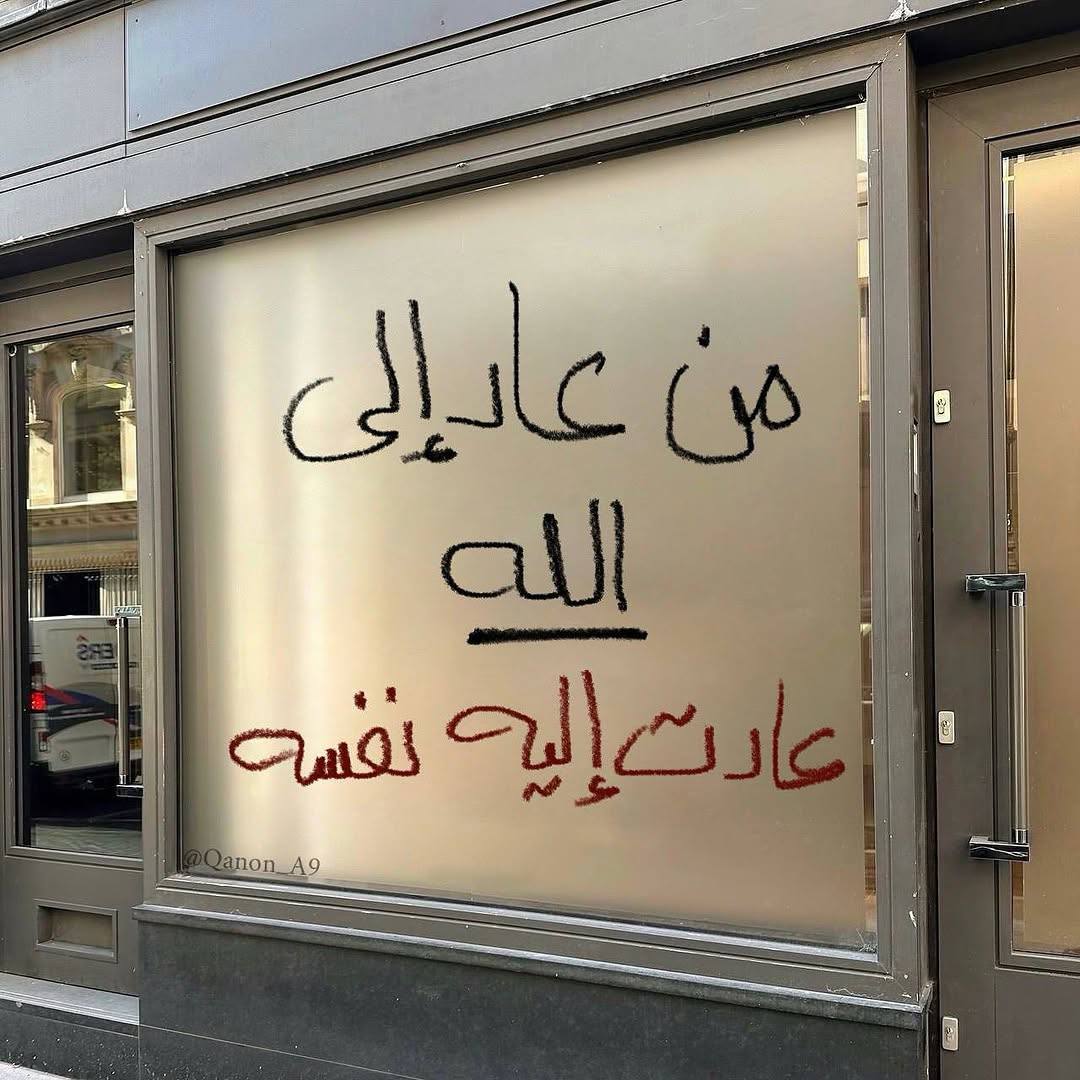 من عاد إلى
الله
عادت إليه نفسه
@Qanon_A9
ERS